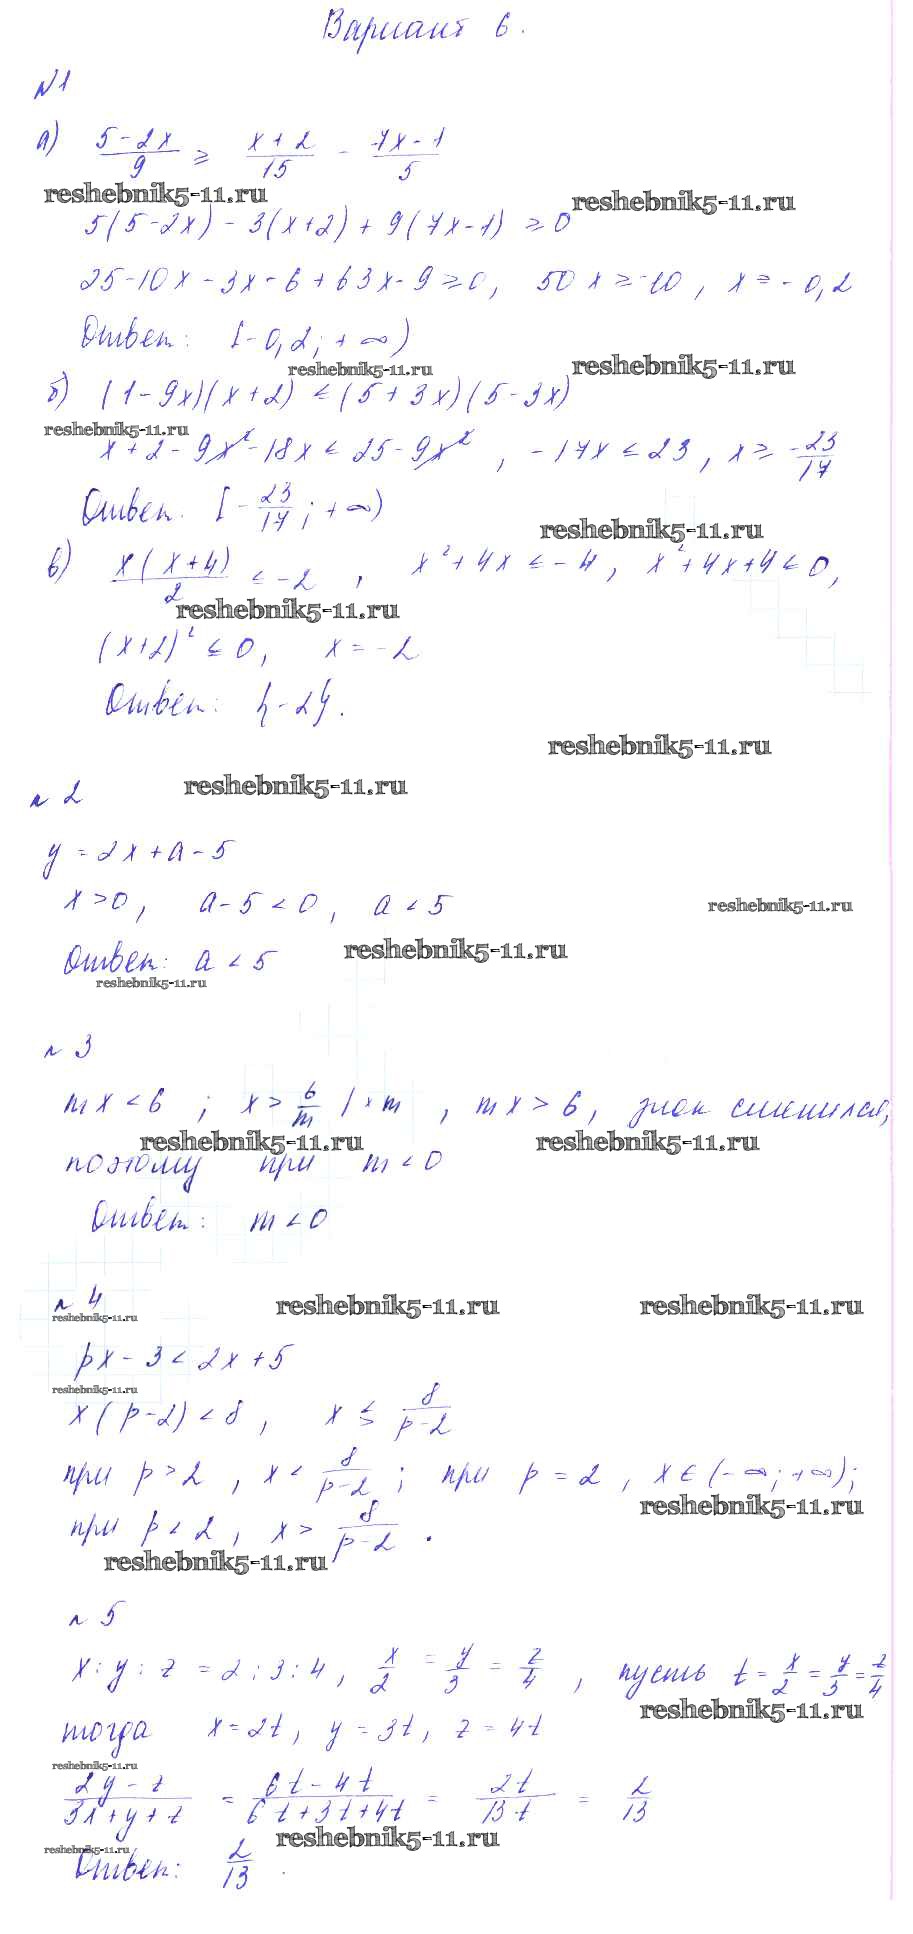 Вариант 6.
№1
а) (5-2x)/9 ≥ (x+2)/15 - (7x-1)/5
reshebnik5-11.ru reshebnik5-11.ru
5(5-2x) - 3(x+2) + 9(7x-1) ≥ 0
25-10x-3x-6+63x-9≥0, 50x ≥ -10, x ≥ -0,2
Ответ: [-0,2; +∞)
reshebnik5-11.ru reshebnik5-11.ru
б) (1-9x)(x+2) ≤ (5+3x)(5-3x)
reshebnik5-11.ru
x+2-9x²-18x ≤ 25-9x², -17x ≤ 23, x ≥ -23/17
Ответ. [-23/17; +∞)
reshebnik5-11.ru
в) x(x+4)/2 ≤ -2, x²+4x ≤ -4, x²+4x+4 ≤ 0,
reshebnik5-11.ru
(x+2)² ≤ 0, x = -2
Ответ: {-2}.
reshebnik5-11.ru
reshebnik5-11.ru
№ 2
y = 2x + a - 5
x > 0, a - 5 < 0, a < 5
reshebnik5-11.ru
Ответ: a < 5
reshebnik5-11.ru
reshebnik5-11.ru
№ 3
mx < 6; x > 6/m |·m, mx > 6, знак сменился,
reshebnik5-11.ru reshebnik5-11.ru
поэтому при m < 0
Ответ: m < 0
№ 4
reshebnik5-11.ru reshebnik5-11.ru
reshebnik5-11.ru
px - 3 < 2x + 5
reshebnik5-11.ru
x(p-2) < 8, x ≶ 8/(p-2)
при p > 2, x < 8/(p-2); при p = 2, x ∈ (-∞; +∞);
reshebnik5-11.ru
при p < 2, x > 8/(p-2).
reshebnik5-11.ru
№ 5
x : y : z = 2 : 3 : 4, x/2 = y/3 = z/4, пусть t = x/2 = y/3 = z/4
reshebnik5-11.ru
тогда x = 2t, y = 3t, z = 4t
reshebnik5-11.ru
(2y-z)/(3x+y+z) = (6t-4t)/(6t+3t+4t) = 2t/13t = 2/13
reshebnik5-11.ru
reshebnik5-11.ru
Ответ: 2/13.